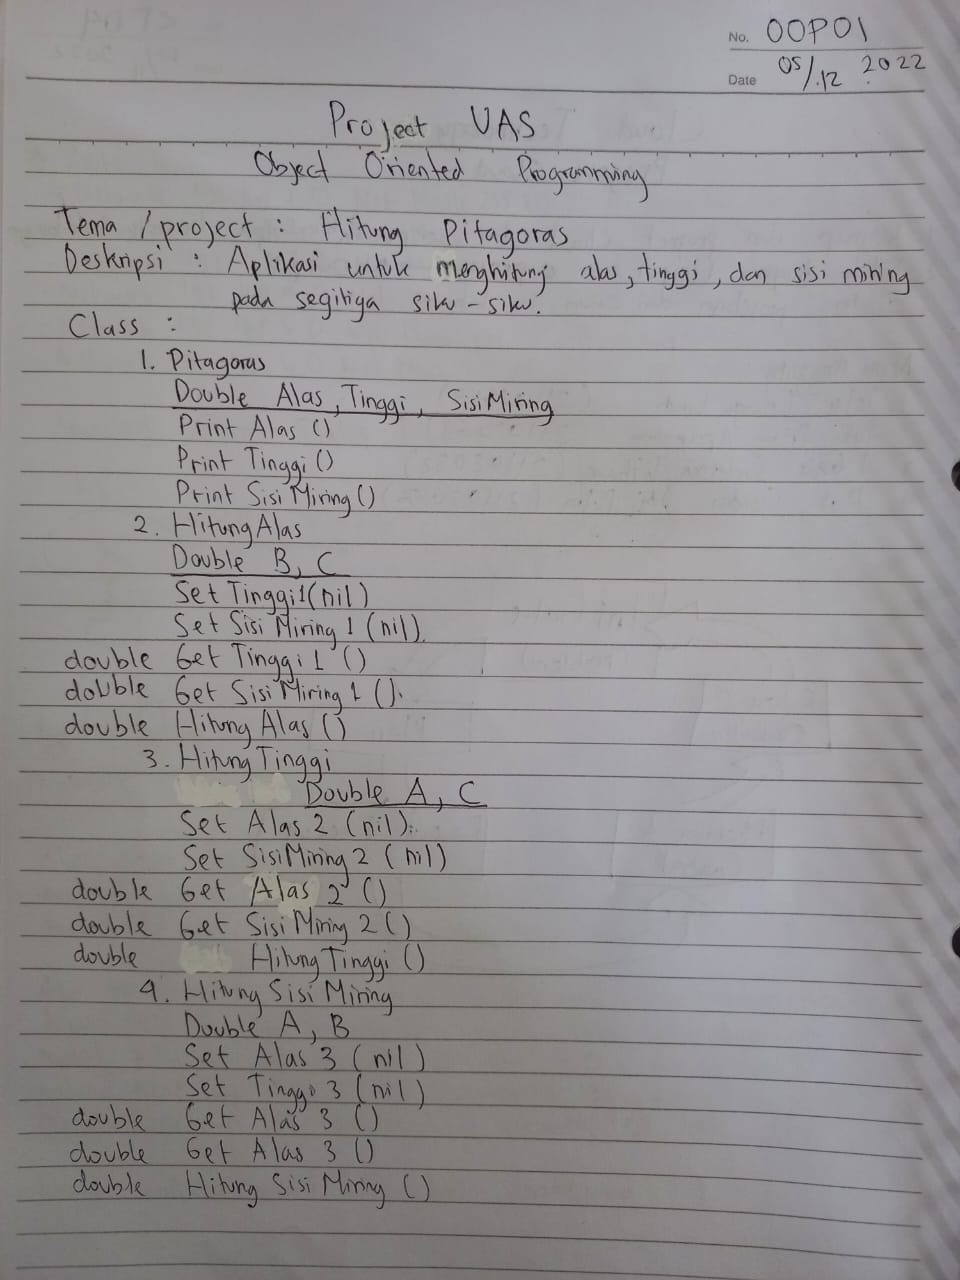 No. OOP01
Date 05/.12 2022
Project UAS
Object Oriented Programming
Tema / project : Hitung Pitagoras
Deskripsi : Aplikasi untuk menghitung alas, tinggi, dan sisi miring
pada segitiga siku-siku.
Class :
1. Pitagoras
Double Alas, Tinggi, SisiMiring
Print Alas ()
Print Tinggi ()
Print Sisi Miring ()
2. Hitung Alas
Double B, C
Set Tinggi1 (nil)
Set Sisi Miring 1 (nil).
double Get Tinggi 1 ()
double Get Sisi Miring 1 ().
double Hitung Alas ()
3. Hitung Tinggi
Double A, C
Set Alas 2 (nil).
Set SisiMiring 2 (nil)
double Get Alas 2 ()
double Get Sisi Miring 2 ()
double Hitung Tinggi ()
4. Hitung Sisi Miring
Double A, B
Set Alas 3 (nil)
Set Tinggi 3 (nil)
double Get Alas 3 ()
double Get Alas 3 ()
double Hitung Sisi Miring ()